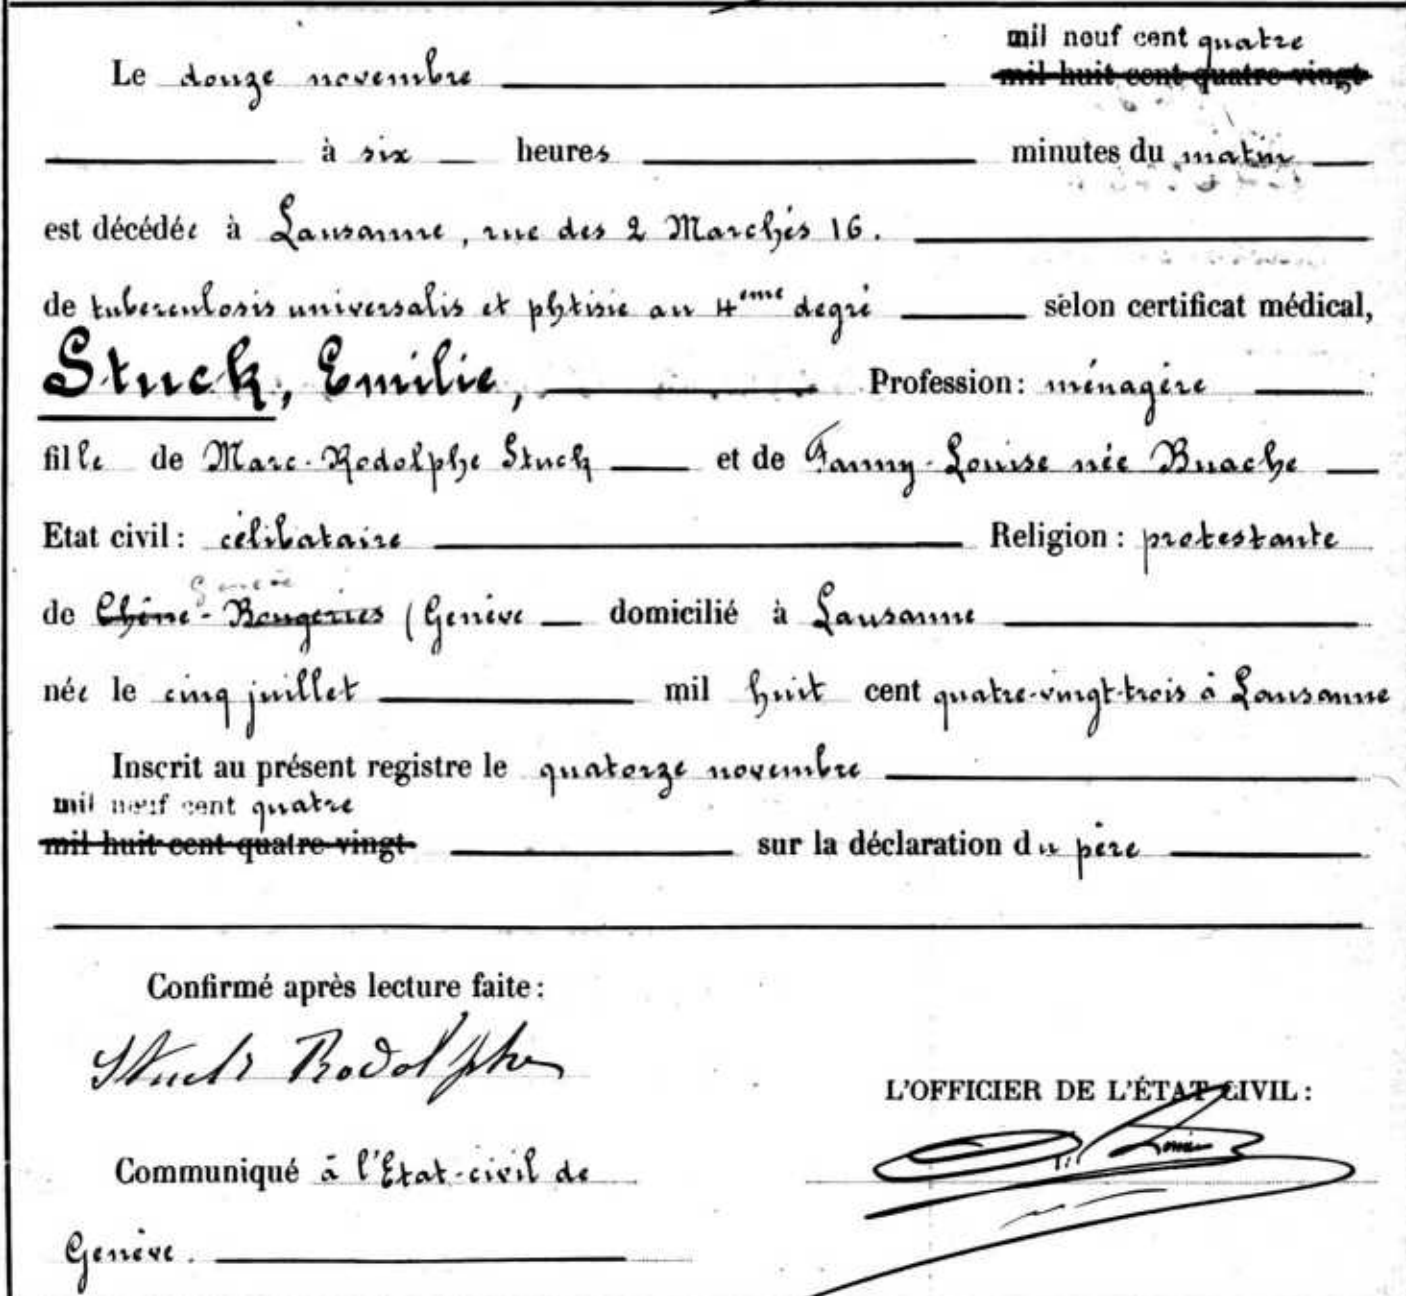 mil neuf cent quatre
Le douze novembre mil huit cent quatre-vingt
à six heures minutes du matin
est décédée à Lausanne, rue des 2 Marchés 16.
de tuberculosis universalis et phtisie au 4ème degré selon certificat médical,
Stuck, Emilie, Profession: ménagère
fille de Marc-Rodolphe Stuck et de Fanny-Louise née Buache
Etat civil: célibataire Religion: protestante
Genève
de Chêne-Bougeries (Genève domicilié à Lausanne
née le cinq juillet mil huit cent quatre-vingt-trois à Lausanne
Inscrit au présent registre le quatorze novembre
mil neuf cent quatre
mil huit cent quatre-vingt sur la déclaration du père
Confirmé après lecture faite:
Stuck Rodolphe
L'OFFICIER DE L'ÉTAT CIVIL:
Communiqué à l'Etat-civil de
Genève.